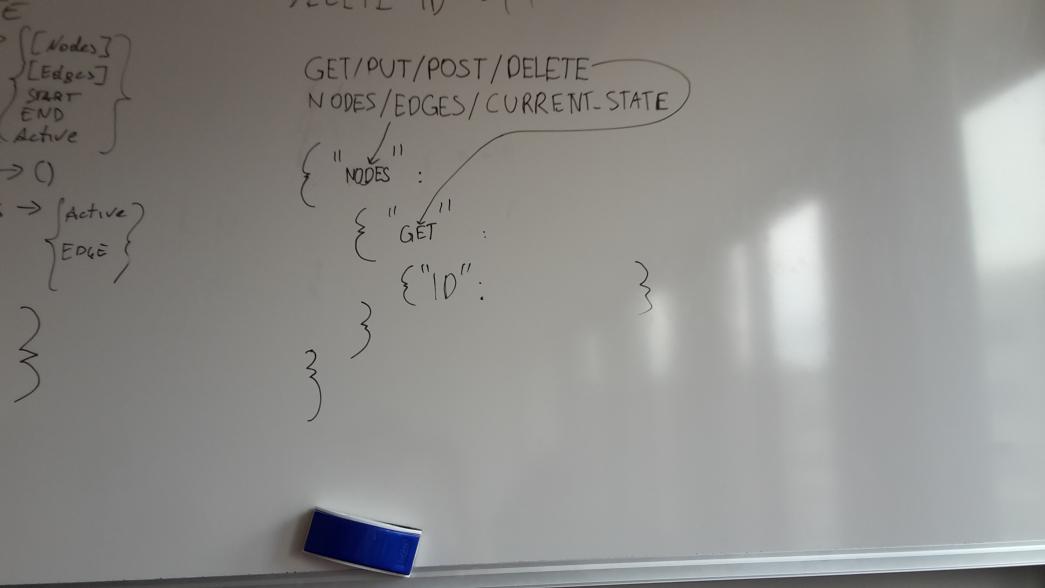 E
{[Nodes]
[Edges]
START
END
Active}
→ ()
→ {Active
EDGE}
}
DELETE ID
GET/PUT/POST/DELETE
NODES/EDGES/CURRENT-STATE
{ "NODES" :
{ "GET" :
{"ID": }
}
}